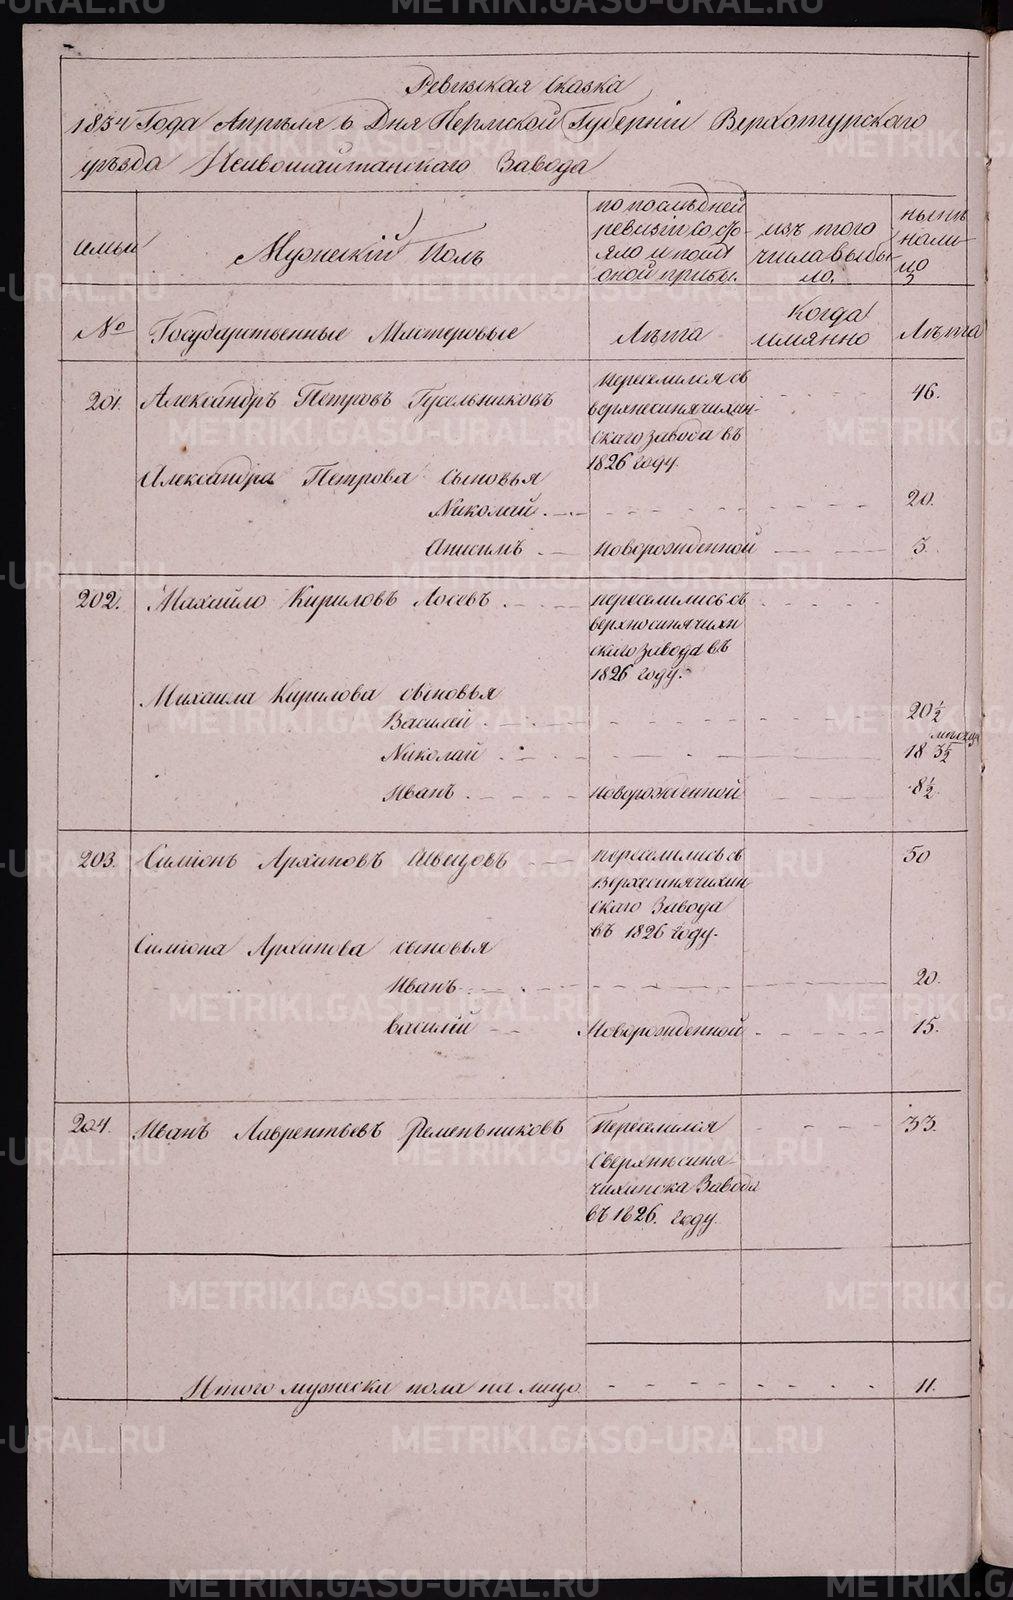 Ревизкая Сказка
1834 Года Апреля 6 Дня Пермской Губерніи Верхотурского
уѣзда Нейвошайтанскаго Завода
семьи
Мужескій Полъ
по послѣдней
ревизіи состо-
яло и после
оной прибы.
изъ того
числа выбы-
ло.
нынѣ
нали-
цо
№
Государственные Мастеровые
Лѣта
Когда
имянно
Лѣта
201.
Александръ Петровъ Гусельниковъ
переселился съ
верхнесинячихин-
скаго завода въ
1826 году.
46.
Александра Петрова сыновья
Николай
20.
Анисимъ
новорожденной
3.
202.
Михайло Кириловъ Лосевъ
переселились съ
верхнесинячихи
скаго завода въ
1826 году.
Михаила Кирилова сыновья
Василей
20 1/2
Николай
18
Иванъ
новорожденной
8 1/2
203.
Симіонъ Архиповъ Швецовъ
переселились съ
Верхесинячихин
скаго Завода
въ 1826 году.
50
Симіона Архипова сыновья
Иванъ
20.
Василій
Новорожденной
15.
204.
Иванъ Лаврентьевъ Ременьниковъ
Переселился
Сверхнесиня-
чихинска Завода
въ 1826. году.
33.
Итого мужеска пола на лицо
11.
METRIKI.GASO-URAL.RU